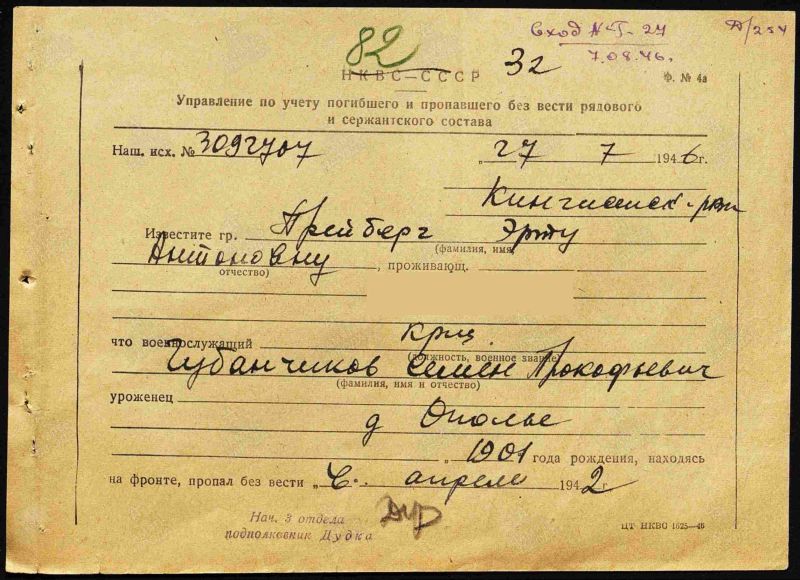 Вход № Т-27 Д/254
7.08.46.
82
НКВС—СССР 32 Ф. № 4а
Управление по учету погибшего и пропавшего без вести рядового
и сержантского состава
Наш. исх. № 3092707 „27 7 1946г.
Кингисепск. рвк
Известите гр. Прейберг Эрту
(фамилия, имя,
Антоновну, проживающ.
отчество)
что военнослужащий крц
(должность, военное звание)
Губанчиков Семен Прокофьевич
(фамилия, имя и отчество)
уроженец
д Ополье
„ 1901 года рождения, находясь
на фронте, пропал без вести „ апреле 1942 г
Нач. 3 отдела
подполковник Дудка
ЦТ НКВС 1625—46